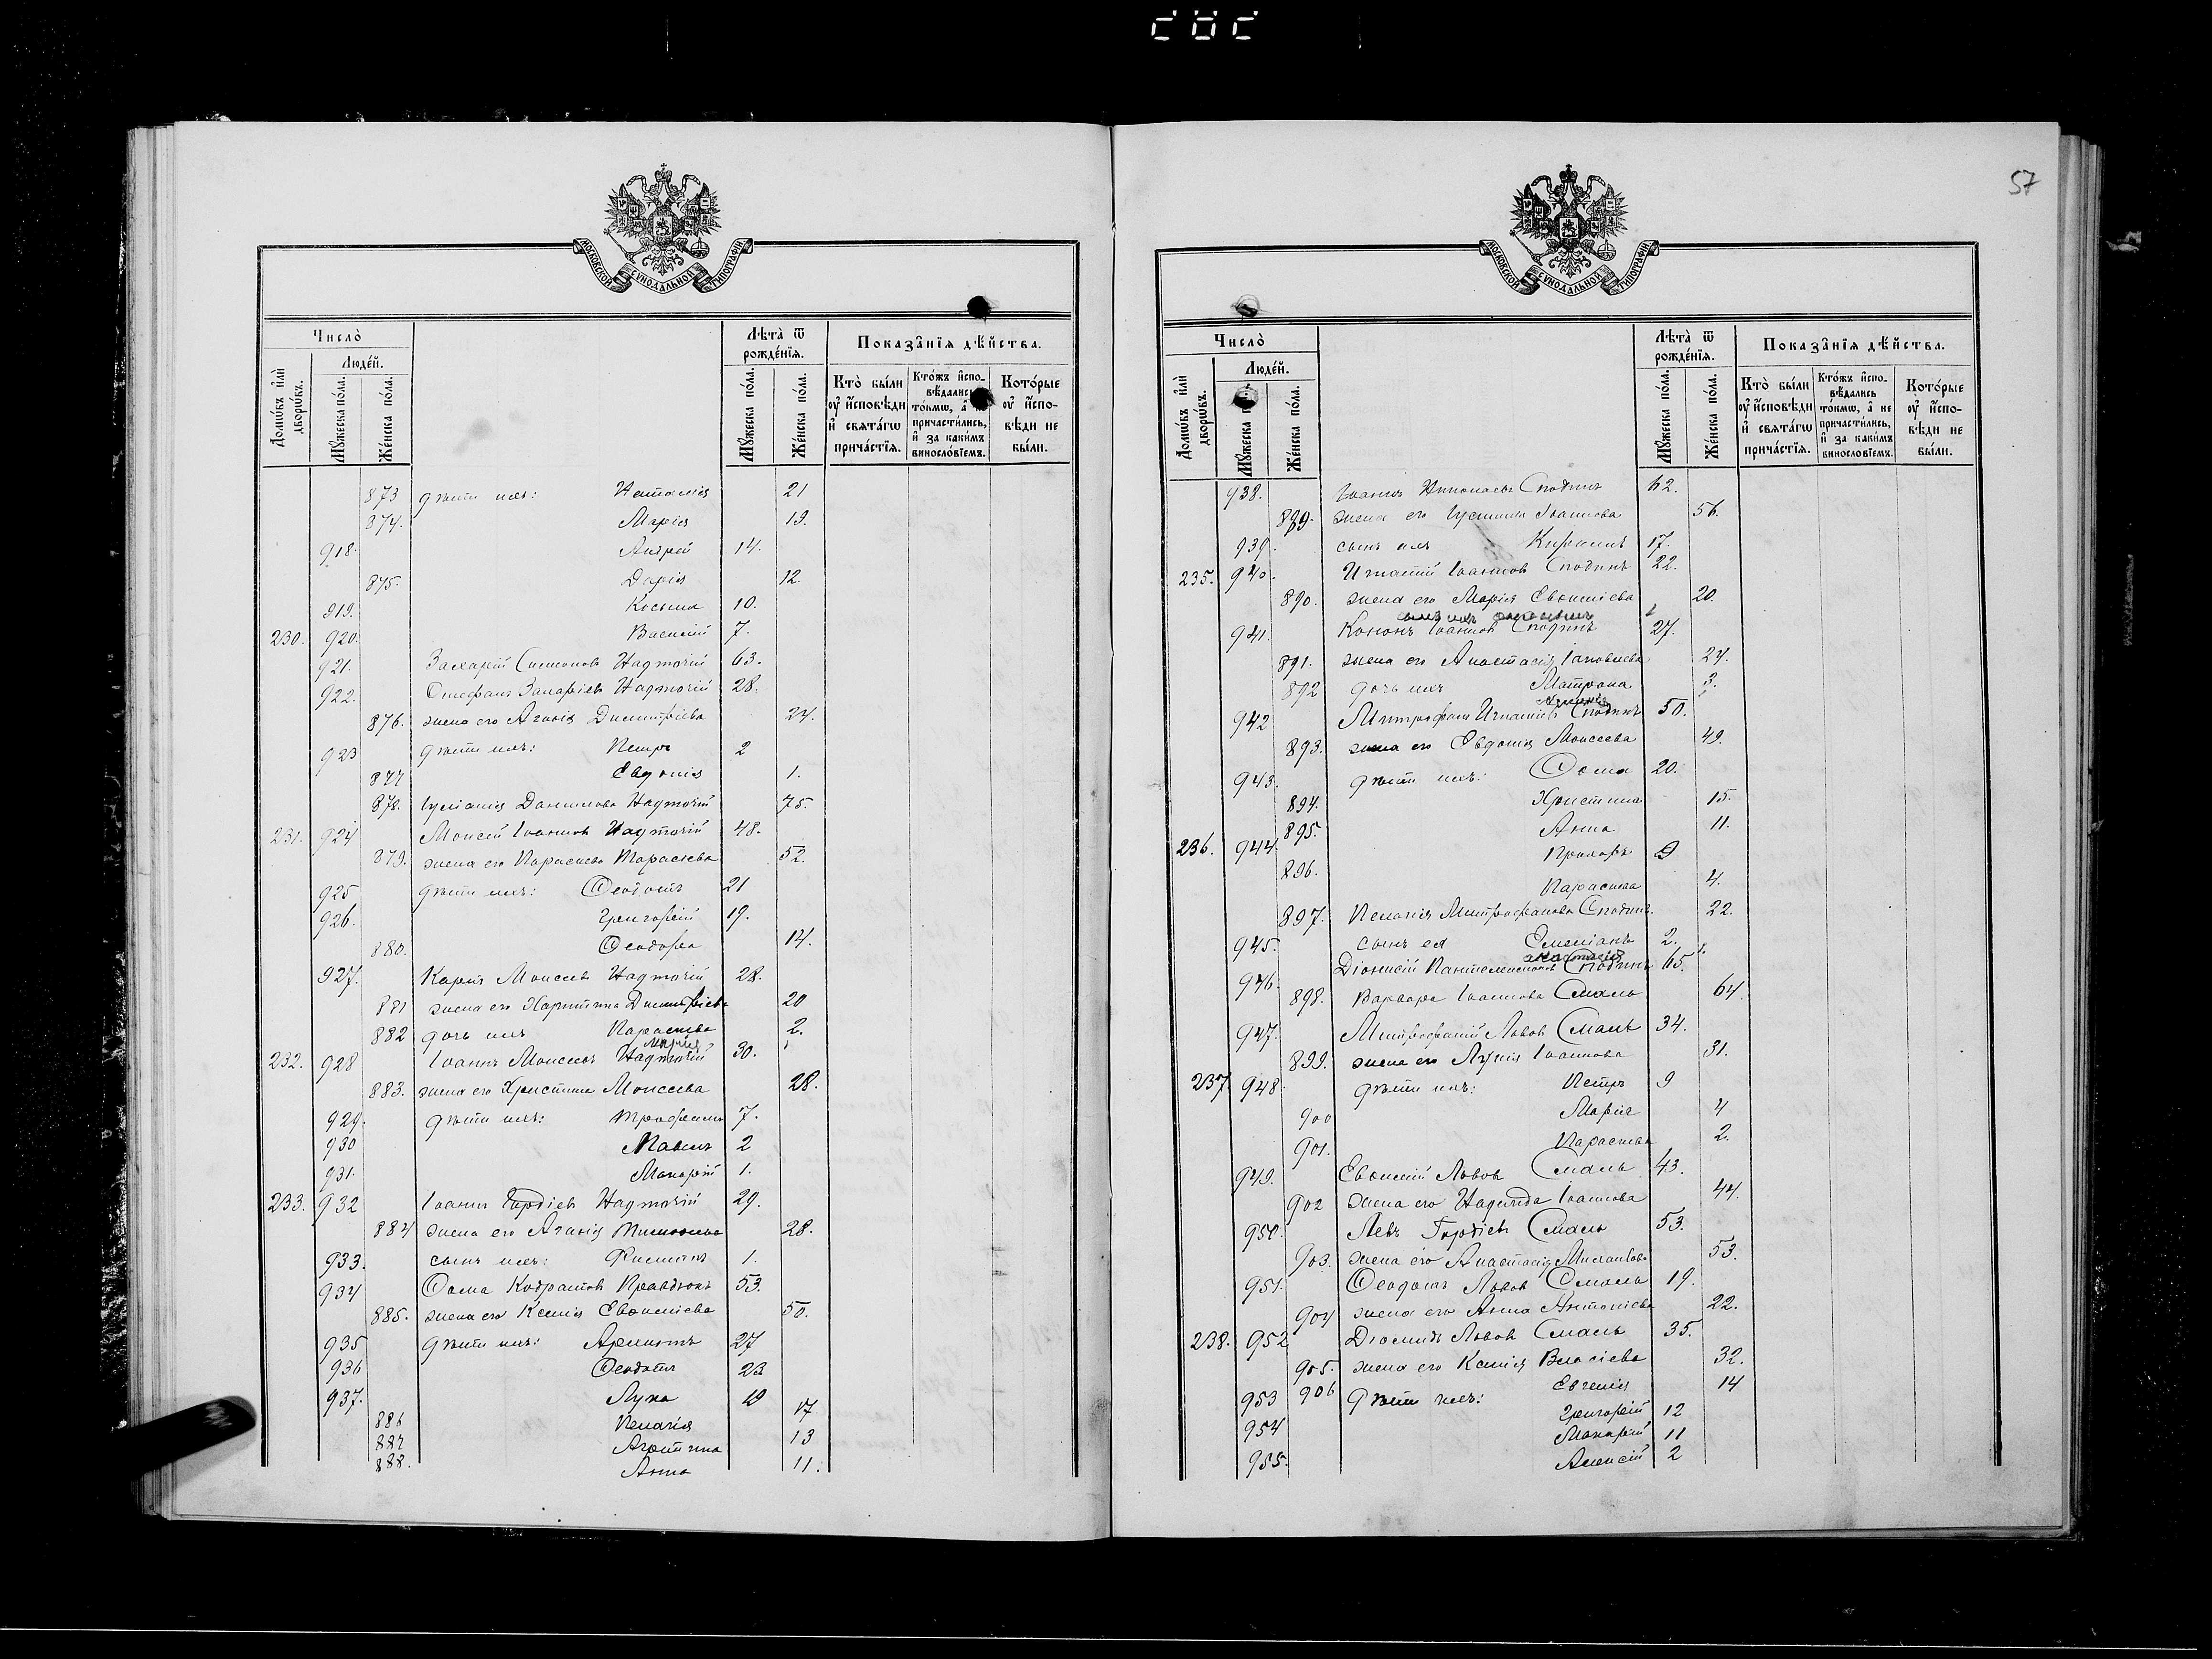 57
МОСКОВСКОЙ СѴНОДАЛЬНОЙ ТИПОГРАФІИ
Число̀
Людéй.
Домѡ́въ и҆лѝ дворѡ́въ.
Мꙋ́жеска по́ла.
Же́нска по́ла.
Лѣта̀ ѿ рожде́нїѧ.
Мꙋ́жеска по́ла.
Же́нска по́ла.
Показа̑нїѧ дѣ́йства.
Кто̀ бы́ли ᲂу҆ и҆́сповѣди и҆ свѧта́гѡ прича́стїѧ.
Кто́жъ и҆спо-вѣ́дались то́кмѡ, а҆ не причасти́лись, и҆ за каки́мъ винословїемъ.
Кото́рые ᲂу҆ и҆́спо-вѣди не бы́ли.
873 дѣти ихъ: Наталія 21
874. Марія 19.
918. Андрей 14.
875. Дарія 12.
919. Косьма 10.
230. 920. Василій 7.
921. Захарій Симоновъ Надточій 63.
922. Стефанъ Захаріевъ Надточій 28.
876. жена его Агаѳія Димитріева 24.
923 дѣти ихъ: Петръ 2
877 Евдокія 1.
878. Іуліанія Данилова Надточій 75.
231. 924 Моисей Іоанновъ Надточій 48.
879. жена его Параскева Тарасіева 52.
925 дѣти ихъ: Ѳеодотъ 21
926. Григорій 19.
880. Ѳеодора 14.
927. Карпъ Моисеевъ Надточій 28.
881 жена его Харитина Димитріева 20
882 дочь ихъ Параскева 2.
Марія
232. 928 Іоаннъ Моисеевъ Надточій 30.
883. жена его Христина Моисеева 28.
929. дѣти ихъ: Трофимъ 7.
930 Павелъ 2
931. Макарій 1.
233. 932 Іоаннъ Гордіевъ Надточій 29.
884 жена его Агаѳія 28.
933. сынъ ихъ: Филиппъ 1.
934 Ѳома Кодратовъ Правдюкъ 53.
885. жена его Ксенія Евѳиміева 50.
935 дѣти ихъ: 27
936 Ѳеодотъ 23
937. Лука 19
886 Пелагія 17
887 Агрипина 13
888. Анна 11.
Число̀
Людéй.
Домѡ́въ и҆лѝ дворѡ́въ.
Мꙋ́жеска
Же́нска по́ла.
Лѣта̀ ѿ рожде́нїѧ.
Мꙋ́жеска по́ла.
Же́нска по́ла.
Показа̑нїѧ дѣ́йства.
Кто̀ бы́ли ᲂу҆ и҆́сповѣди и҆ свѧта́гѡ прича́стїѧ.
Кто́жъ и҆спо-вѣ́дались то́кмѡ, а҆ не причасти́лись, и҆ за каки́мъ винословїемъ.
Кото́рые ᲂу҆ и҆́спо-вѣди не бы́ли.
МОСКОВСКОЙ СѴНОДАЛЬНОЙ ТИПОГРАФІИ
938. Іоаннъ Николаевъ Сподинъ 62.
889. жена его Іустина Іоаннова 56.
939. сынъ ихъ Кириллъ 17.
235. 940. Игнатій Іоанновъ Сподинъ 22.
890. жена его Марія Евѳиміева 20.
941. Кононъ Іоанновъ Сподинъ 27.
891. жена его Анастасія Іаковлева 24.
892 дочь ихъ Матрона 3.
942 Митрофанъ Игнатіевъ Сподинъ 50.
893. жена его Евдокія Моисеева 49.
943. дѣти ихъ: Ѳома 20.
894. Христина 15.
895. Анна 11.
236. 944. Прохоръ 9
896. Параскева 4.
897. Пелагія Митрофанова Сподинъ 22.
945. сынъ ея Емеліанъ 2.
Анастасія 1.
946. Діонисій Пантелеимоновъ Сподинъ 65.
898. Варвара Іоаннова Смаль 64.
947. Митрофаній Львовъ Смаль 34.
899. жена его Лукія Іоаннова 31.
237 948. дѣти ихъ: Петръ 9
900 Марія 4
901. Параскева 2.
949. Евѳимій Львовъ Смаль 43.
902 жена его Надежда Іоаннова 44.
950. Левъ Гордіевъ Смаль 53.
903. жена его Анастасія 53.
951. Ѳеодотъ Львовъ Смаль 19.
904 жена его Анна Антоніева 22.
238. 952 Діомидъ Львовъ Смаль 35.
905. жена его Ксенія Власіева 32.
906 дѣти ихъ: Евгенія 14
953 Григорій 12
954 Макарій 11
955. Алексій 2